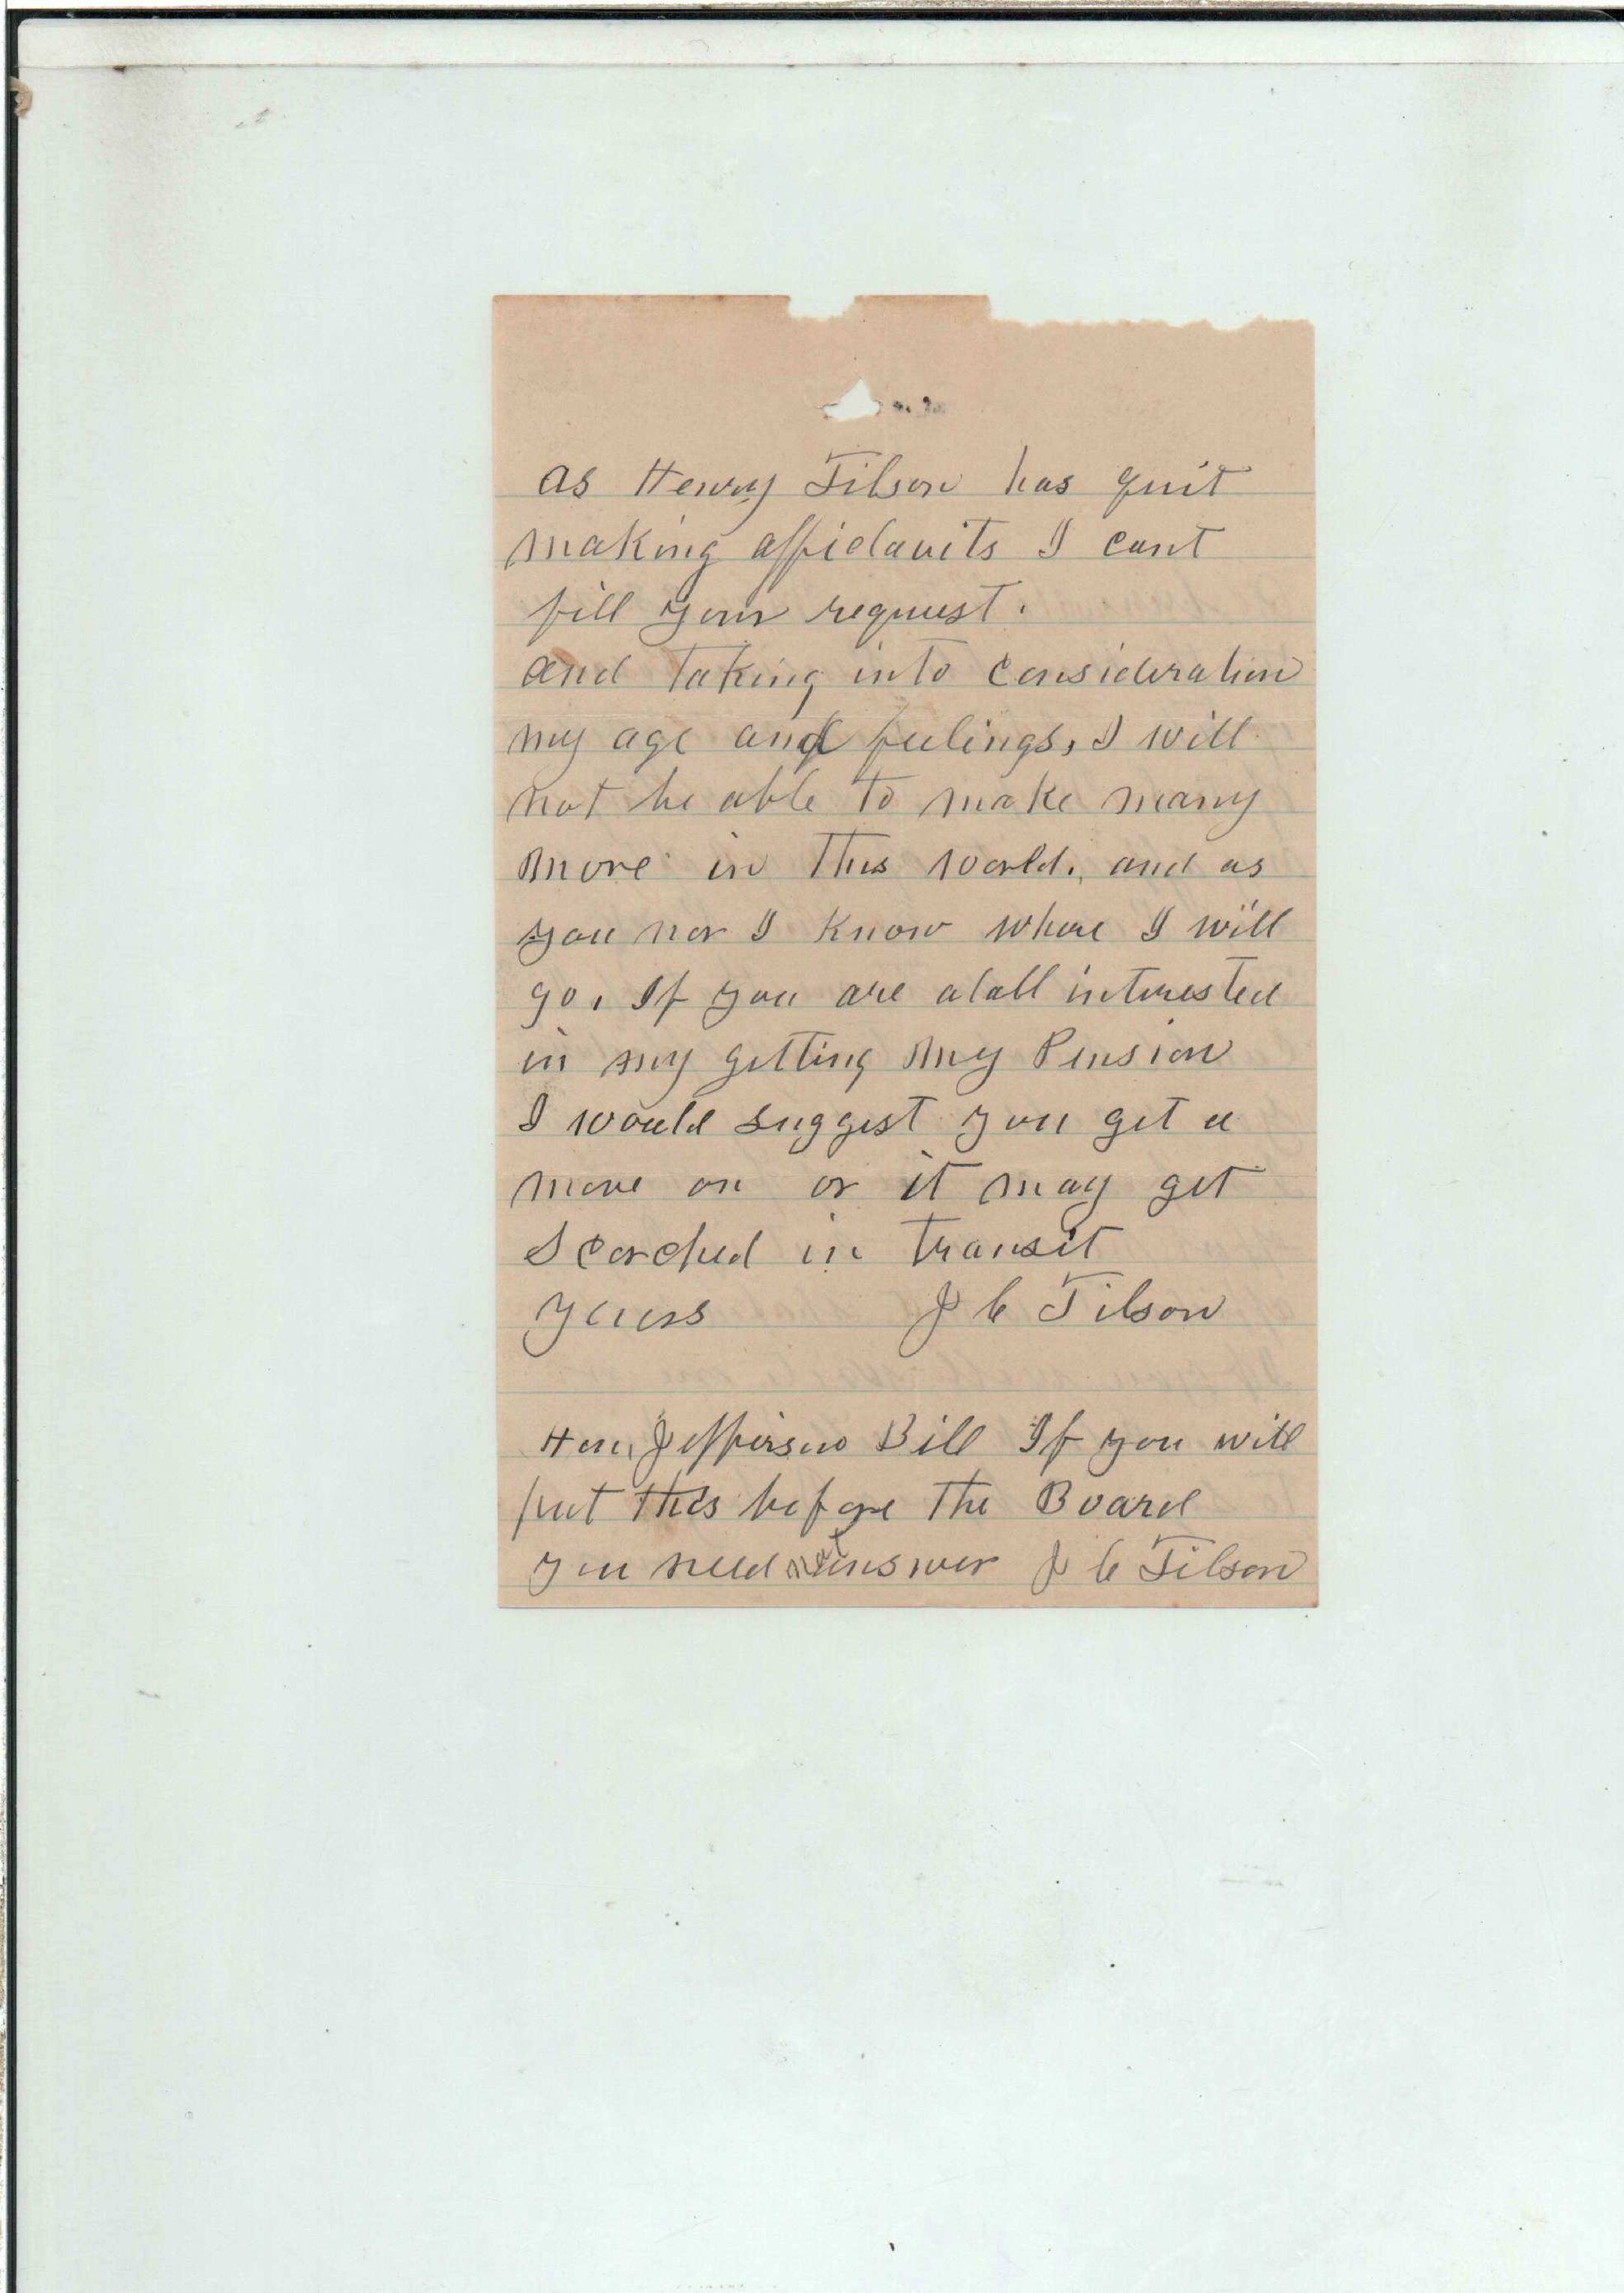 as Henry Tilson has quit
making affidavits I cant
fill your request.
and taking into consideration
my age and feelings, I will
not be able to make many
more in this world. and as
you nor I know where I will
go. If you are atall interested
in my getting my Pension
I would suggest you get a
move on or it may get
Scorched in transit
yours J C Tilson
Hon. Jefferson Bill If you will
put this before the Board
you need not answer J C Tilson